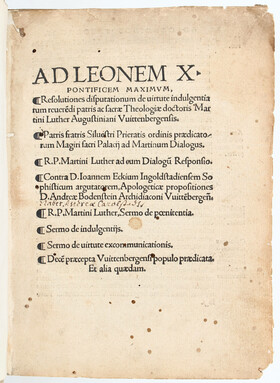 AD LEONEM X·
PONTIFICEM MAXIMVM,
¶Resolutiones disputationum de uirtute indulgentia
rum reuerēdi patris ac sacræ Theologiæ doctoris Mar
tini Luther Augustiniani Vuittenbergensis.
¶Patris fratris Siluestri Prieratis ordinis prædicato-
rum Magiri sacri Palacij ad Martinum Dialogus.
¶R.P.Martini Luther ad eum Dialogū Responsio.
¶Contra D.Ioannem Eckium Ingolstadiensem So
phisticum argutatorem, Apologeticæ propositiones
D.Andreæ Bodenstein Archidiaconi Vuittēbergeñ.
¶R.P.Martini Luther, Sermo de pœnitentia.
¶Sermo de indulgentijs.
¶Sermo de uirtute excommunicationis.
¶Decē præcepta Vuittenbergensi populo prædicata.
Et alia quædam.